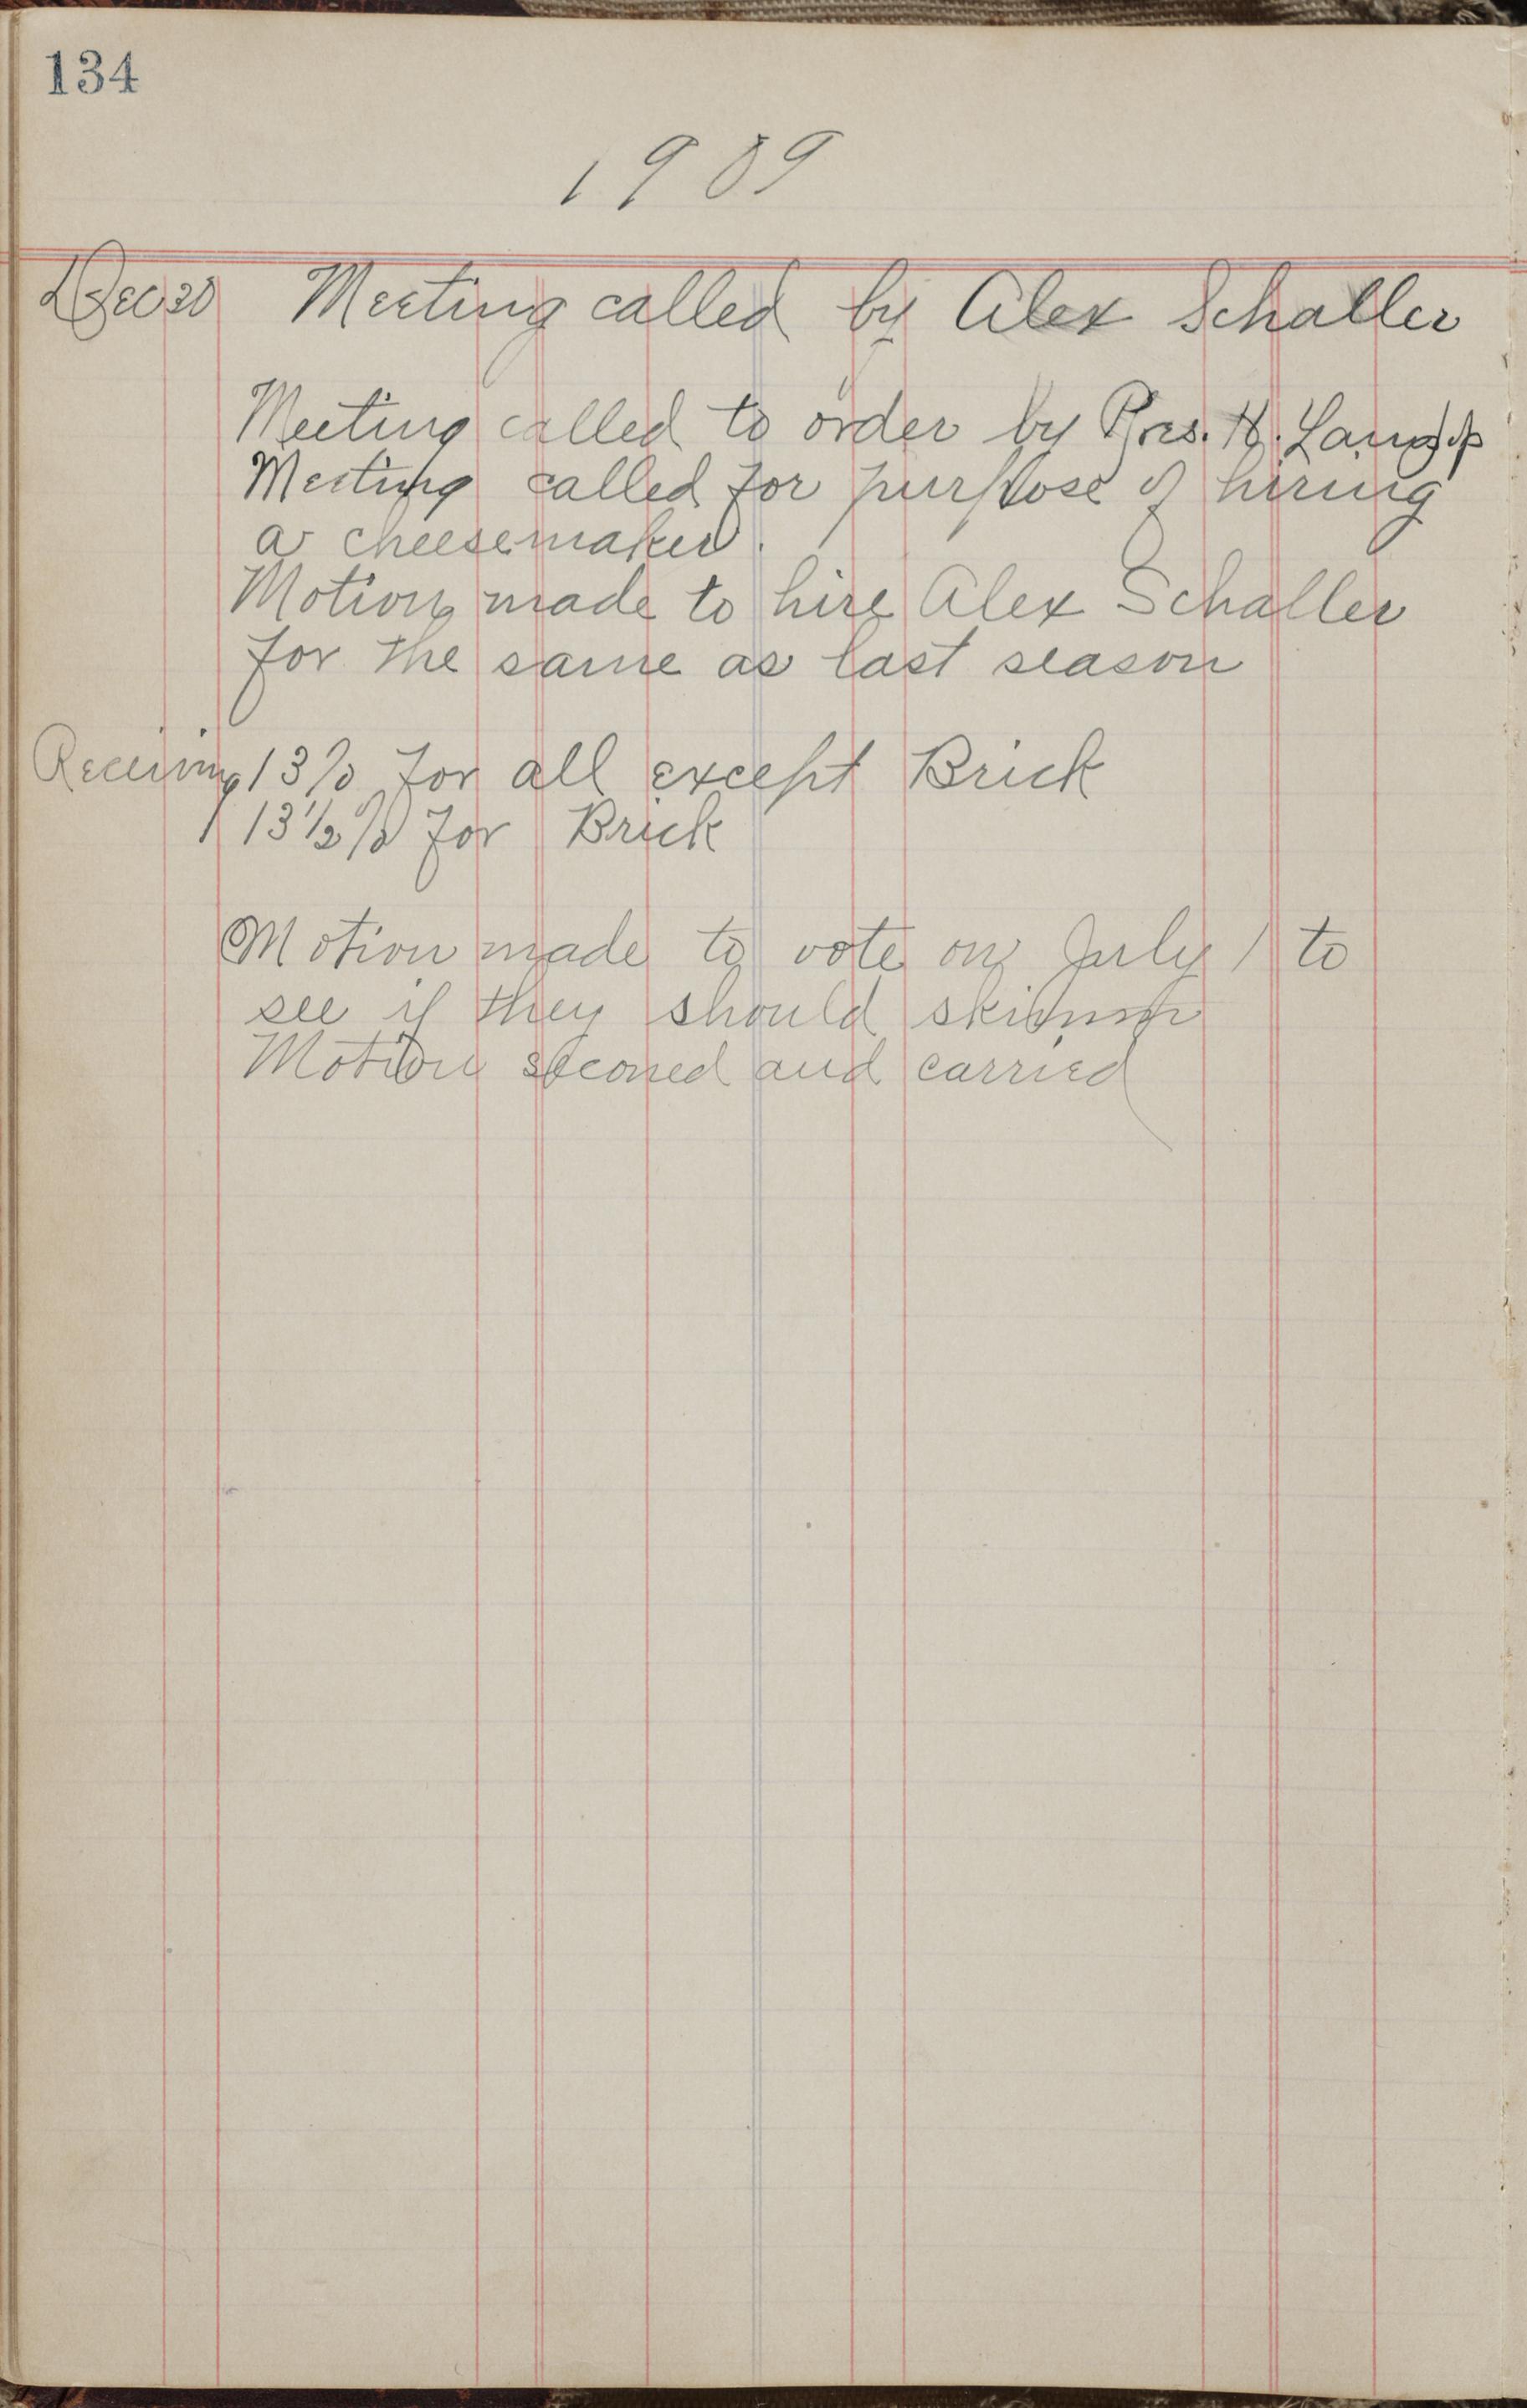 134
1909
Dec 30 Meeting called by Alex Schaller
Meeting called to order by Pres. H.
Meeting called for purpose of hiring
a cheesemaker.
Motion made to hire Alex Schaller
for the same as last season
Receiving 13% for all except Brick
13½% for Brick
Motion made to vote on July 1 to
see if they should skimm
Motion seconed and carried